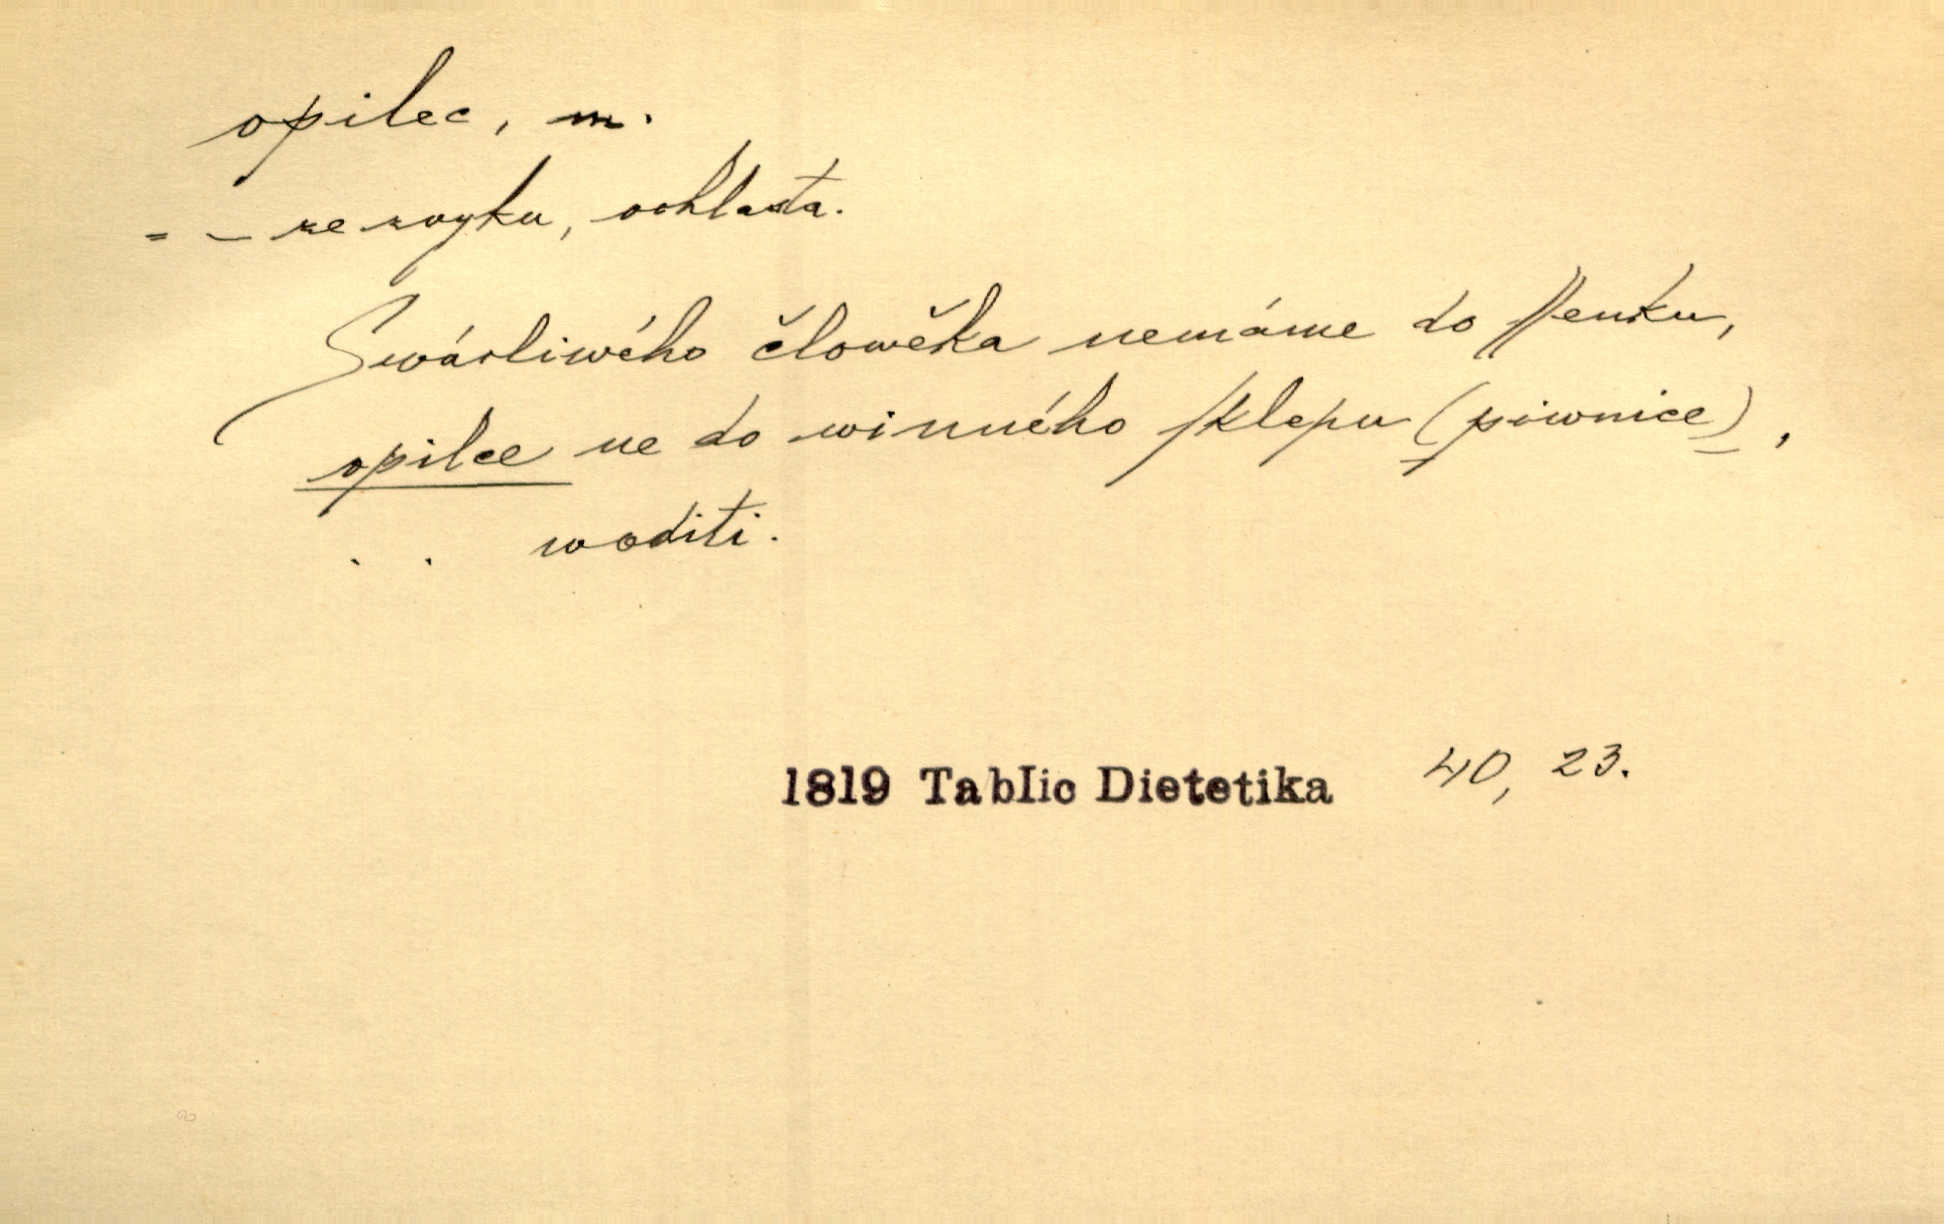 opilec, m.
= – ze zvyku, ochlasta.
Swárliwého člowěka nemáme do ſſenku,
opilce ne do winného ſklepu (piwnice),
. . woditi.
1819 Tablic Dietetika 40, 23.